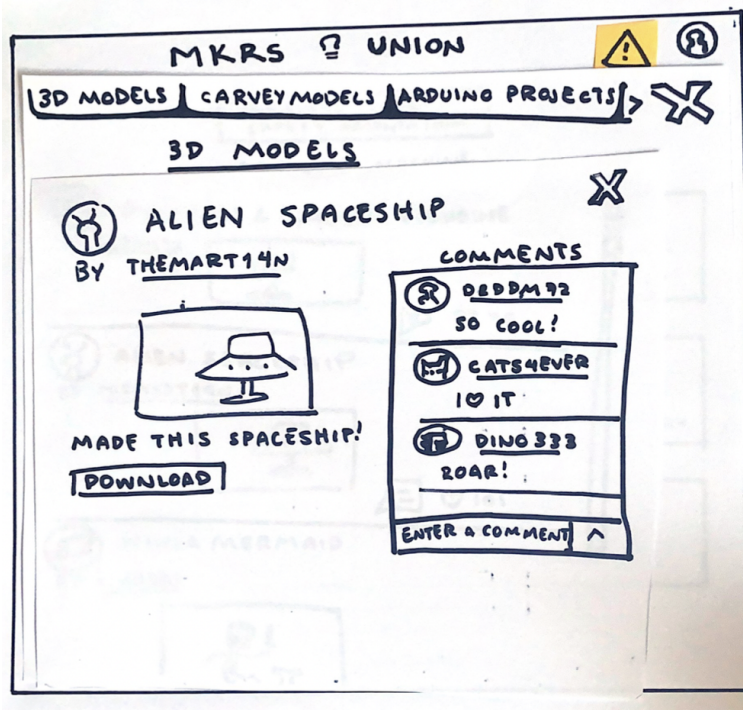 MKRS UNION
3D MODELS
CARVEY MODELS
ARDUINO PROJECTS
>
3D MODELS
ALIEN SPACESHIP
BY THEMART14N
MADE THIS SPACESHIP!
DOWNLOAD
COMMENTS
SO COOL!
CATS4EVER
I ♡ IT
DINO333
ROAR!
ENTER A COMMENT ^